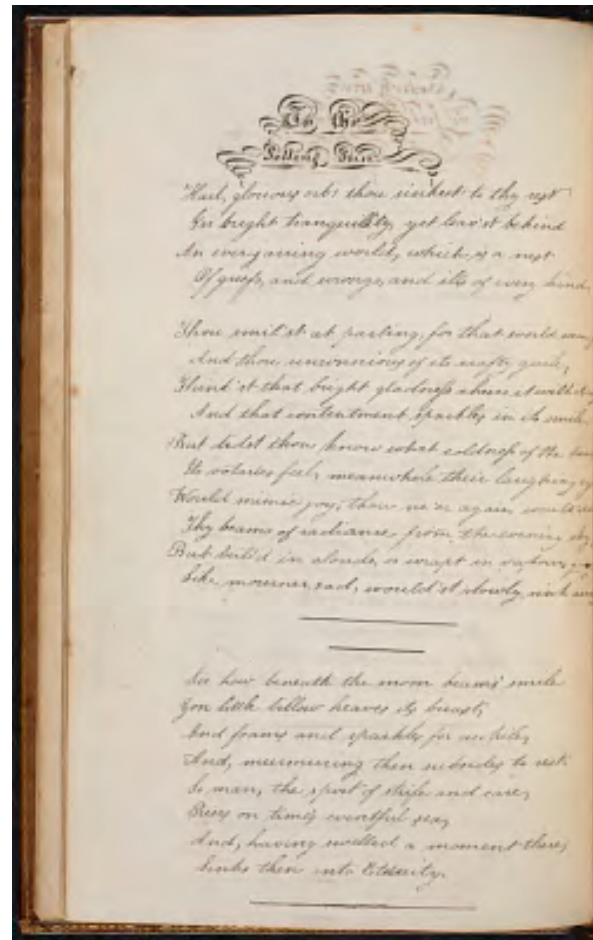 To the
Setting Sun
Hail, glorious orb! thou sinkest to thy rest
In bright tranquillity, yet leav'st behind
An everjarring world, which is a nest
Of griefs, and wrongs, and ills of every kind.
Thou smil'st at parting, for that world
And thou unconscious of its crafty guile,
Think'st that bright gladness
And that contentment sparkles in its smile.
But didst thou know what coldness of the
Its votaries feel, meanwhile their laughing
Would mimic joy, thou ne'er again would'st
Thy beams of radiance from the evening sky,
But veil'd in clouds, or wrapt in vapours,
Like mourner sad, would'st slowly sink
See how beneath the moon beams' smile
Yon little billow heaves its breast,
And foams and sparkles for awhile,
And, murmuring then subsides to rest.
So man, the sport of strife and care,
Rises on time's eventful sea,
And, having swelled a moment there,
Sinks then into Eternity.